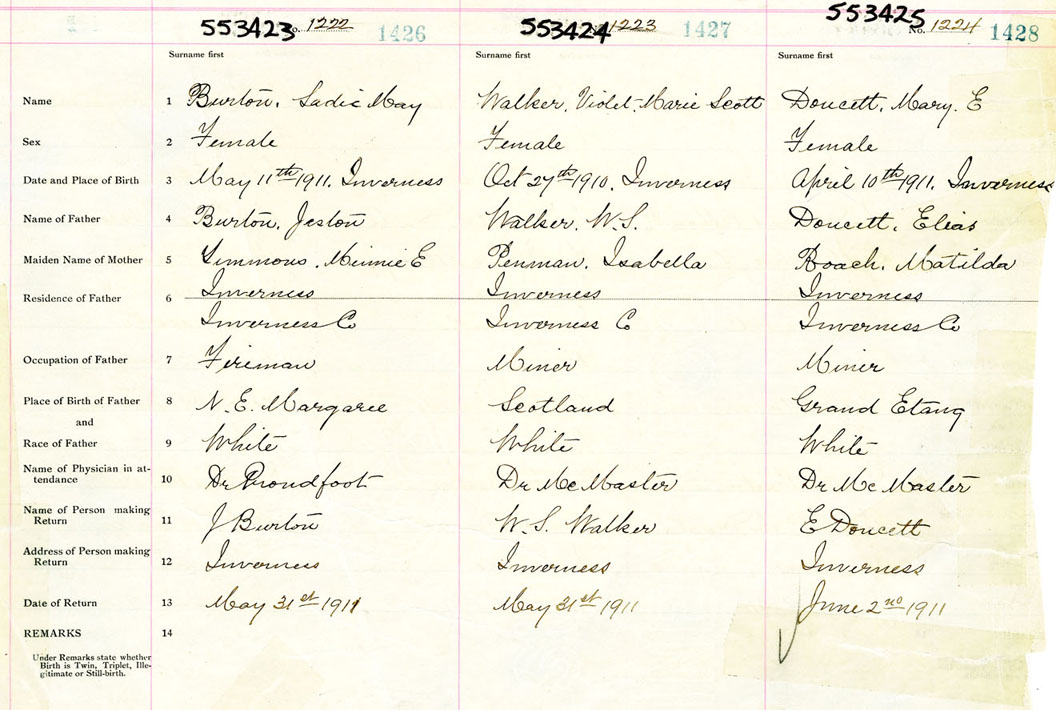 553423 No. 1222 1426 553424 1223 1427 553425 No. 1224 1428
Surname first Surname first Surname first
Name 1 Burton, Sadie May Walker, Violet Marie Scott Doucett, Mary. E
Sex 2 Female Female Female
Date and Place of Birth 3 May 11th 1911, Inverness Oct 27th 1910, Inverness April 10th 1911, Inverness
Name of Father 4 Burton, Jeston Walker, W.S. Doucett, Elias
Maiden Name of Mother 5 Timmons, Minnie E Penman, Isabella Roach, Matilda
Residence of Father 6 Inverness Inverness Inverness
Inverness Co Inverness C Inverness Co
Occupation of Father 7 Fireman Miner Miner
Place of Birth of Father 8 N.E. Margaree Scotland Grand Etang
and
Race of Father 9 White White White
Name of Physician in at-
tendance 10 Dr Proudfoot Dr McMaster Dr McMaster
Name of Person making
Return 11 J Burton W.S. Walker E Doucett
Address of Person making
Return 12 Inverness Inverness Inverness
Date of Return 13 May 31st 1911 May 31st 1911 June 2nd 1911
REMARKS 14
Under Remarks state whether
Birth is Twin, Triplet, Ille-
gitimate or Still-birth.